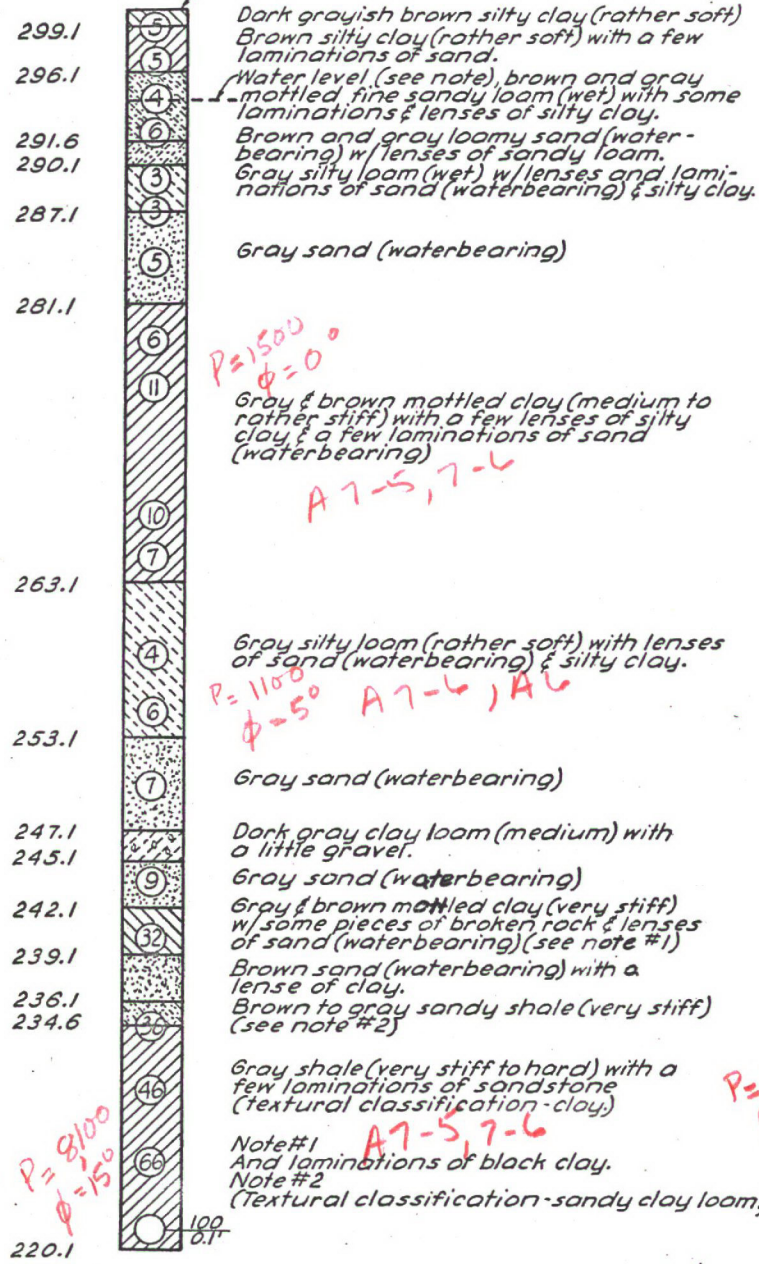 Dark grayish brown silty clay (rather soft)
5
299.1
Brown silty clay (rather soft) with a few
laminations of sand.
5
296.1
Water level (see note), brown and gray
mottled fine sandy loam (wet) with some
laminations & lenses of silty clay.
4
6
291.6
Brown and gray loamy sand (water-
bearing) w/ lenses of sandy loam.
290.1
Gray silty loam (wet) w/ lenses and lami-
nations of sand (waterbearing) & silty clay.
3
3
287.1
5
Gray sand (waterbearing)
281.1
6
P=1500
φ=0°
11
Gray & brown mottled clay (medium to
rather stiff) with a few lenses of silty
clay & a few laminations of sand
(waterbearing)
A7-5, 7-6
10
7
263.1
4
Gray silty loam (rather soft) with lenses
of sand (waterbearing) & silty clay.
P=1100
φ=5°
A7-6, A6
6
253.1
7
Gray sand (waterbearing)
247.1
Dark gray clay loam (medium) with
a little gravel.
245.1
9
Gray sand (waterbearing)
242.1
Gray & brown mottled clay (very stiff)
w/ some pieces of broken rock & lenses
of sand (waterbearing) (see note #1)
32
239.1
Brown sand (waterbearing) with a
lense of clay.
236.1
Brown to gray sandy shale (very stiff)
(see note #2)
234.6
36
Gray shale (very stiff to hard) with a
few laminations of sandstone
(textural classification-clay.)
46
P=
A7-5, 7-6
P=8,100
φ=15°
66
Note #1
And laminations of black clay.
Note #2
(Textural classification-sandy clay loam,
100
0.1'
220.1